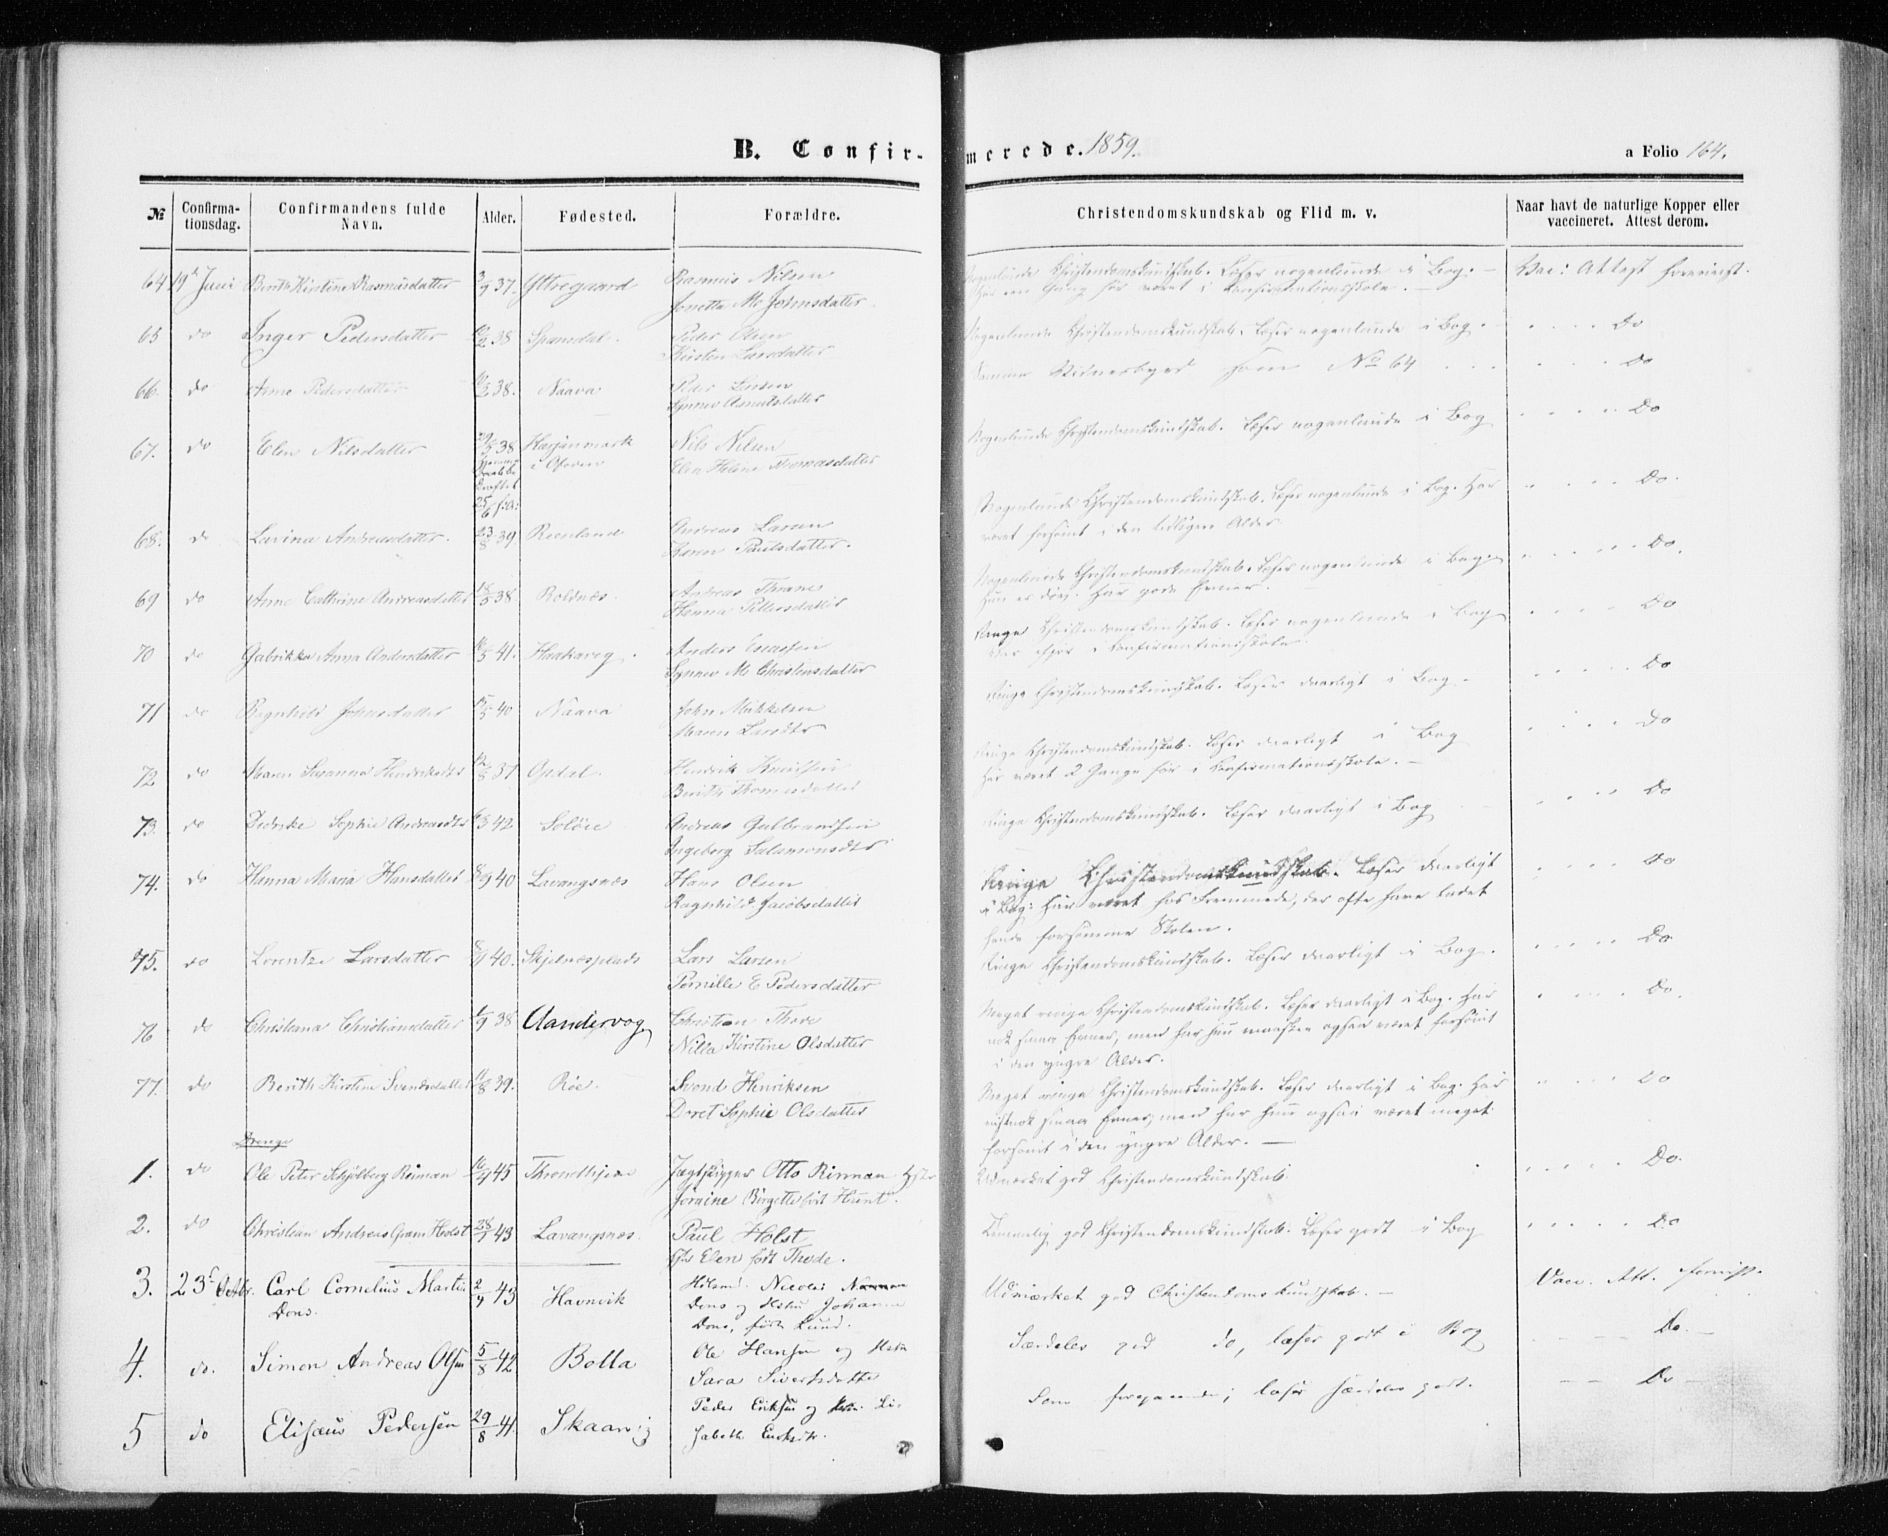 B. Confirmerede. 1859.
a Folio 164.
№ Confirmationsdag. Confirmandens fulde Navn. Alder. Fødested. Forældre. Christendomskundskab og Flid m. v. Naar havt de naturlige Kopper eller vaccineret. Attest derom.
64 19d Juni Berith Kirstine Rasmusdatter 3/9 37. Yttregaard Rasmus Nilsen Nogenlunde Christendomskundskab. Læser nogenlunde i Bog. – Vac: Attest
Jonetta M. Johnsdatter Har een Gang før været i Confirmationsskole. –
65 do Inger Pedersdatter 38 Spansdal. Peder Olsen Nogenlunde Christendomskundskab. Læser nogenlunde i Bog. Do
Kirsten Larsdatter
66. do Anne Pedersdatter 38. Naava Peder Larsen Samme Vidnesbyrd som No 64 Do
Synnev Amundsdatter
67. do Elen Nilsdatter 38 Nils Nilsen Nogenlunde Christendomskundskab. Læser nogenlunde i Bog Do
i Ofoten Elen Helene Thomasdatter
68. do Lavina Andreasdatter. 23/8 39 Reenland Andreas Larsen Nogenlunde Christendomskundskab. Læser nogenlunde i Bog. Har Do.
Karen Paulsdatter. været forsømt i den tidligere Alder.
69 do Anne Cathrine Andreasdatter 18/5 38 Boldnæs. Andreas Thrane Nogenlunde Christendomskundskab. Læser nogenlunde i Bog. Do.
Hanna Pettersdatter Hun er døv. Har gode Evner.
70 do Gabrikka Anna Andersdatter 41. Haakavig. Anders Ringe Christendomskundskab. Læser nogenlunde i Bog Do
Synnev M. Christensdatter Confirmationsskole.
71 do Ragnhild Johnsdatter 15/5 40 Naava John Mikkelsen Ringe Christendomskundskab. Læser daarligt i Bog. Do
Maren Larsdtr
72 do Maren Susanna Henriksdtr 12/8 37 Opdal. Henrik Knudsen Ringe Christendomskundskab. Læser daarligt i Bog Do
Berith Thomasdatter Har været 2 Gange før i Confirmationsskole. –
73. do Sophie Andreasdtr 42 Soløie Andreas Gulbrandsen Ringe Christendomskundskab. Læser daarligt i Bog Do
Ingeborg Salamonsdtr
74. do Hanna Maria Hansdatter 8/9 40 Lavangsnæs Hans Olsen Ringe Christendomskundskab. Læser daarligt Do
Ragnhild Jacobsdatter i Bog. Har været hos Fremmede, der ofte have ladet
hende forsømme Skolen.
75. do Lorentze Larsdatter 40. Skjelnesplads Lars Larsen Ringe Christendomskundskab. Læser daarligt i Bog. Do
Pernille E Pedersdatter
76 do Christiana Christiansdatter 38 Aandervog Christian Thode Meget ringe Christendomskundskab. Læser daarligt i Bog. Har Do.
Nilla Kirstine Olsdatter nok smaa Evner, men har hun maaskee ogsaa været forsømt
i den yngre Alder.
77. do Berith Kirstine Svendsdatter 11/8 39. Røe Svend Henriksen Meget ringe Christendomskundskab. Læser daarligt i Bog. Har Do
Doret Sophie Olsdatter vistnok smaa Evner, men har hun ogsaa været meget
forsømt i den yngre Alder. –
Drenge
1. do Ole Peter Schjølberg Rinman 45 Throndhjem Jægtskipper Otto Rinman Udmærket god Christendomskundskab. Do.
Birgitte født Hunt.
2. do Christian Andreas Gram Holst 43 Lavangsnæs. Paul Holst Temmelig god Christendomskundskab. Læser godt i Bog Do
Elen født Thode.
3. 23d Octbr. Carl Cornelius Martin Dons. 2/9 43 Havnvik Nicolai Udmærket god Christendomskundskab. – Vacc. Att.
Dons og Hstu Johanna
Dons, født Lund.
4. do. Simon Andreas Olsen 5/8 42 Bolla Ole Hansen og Hstu Særdeles god do, læser godt i Bog Do. –
Sara Sivertsdatter
5 do Elisæus Pedersen 29/8 41. Skaarvig Peder Eriksen og Li- Som foregaaende; læser særdeles godt. Do –
sabeth